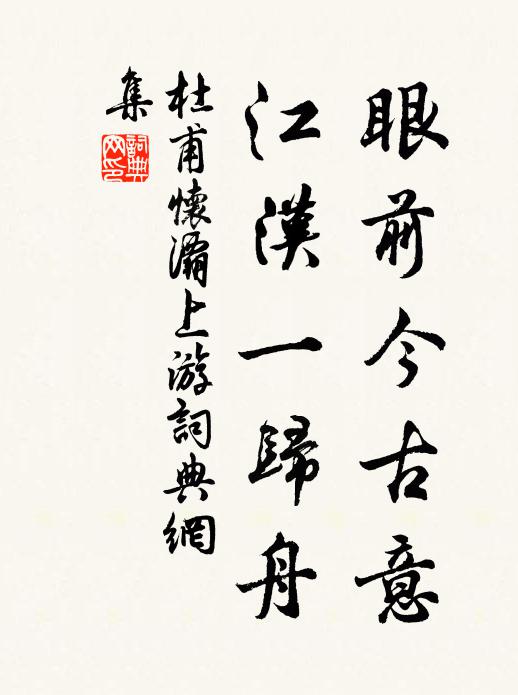 眼前今古意
江漢一歸舟
杜甫懷灞上游詞典網
集
詞典
网印